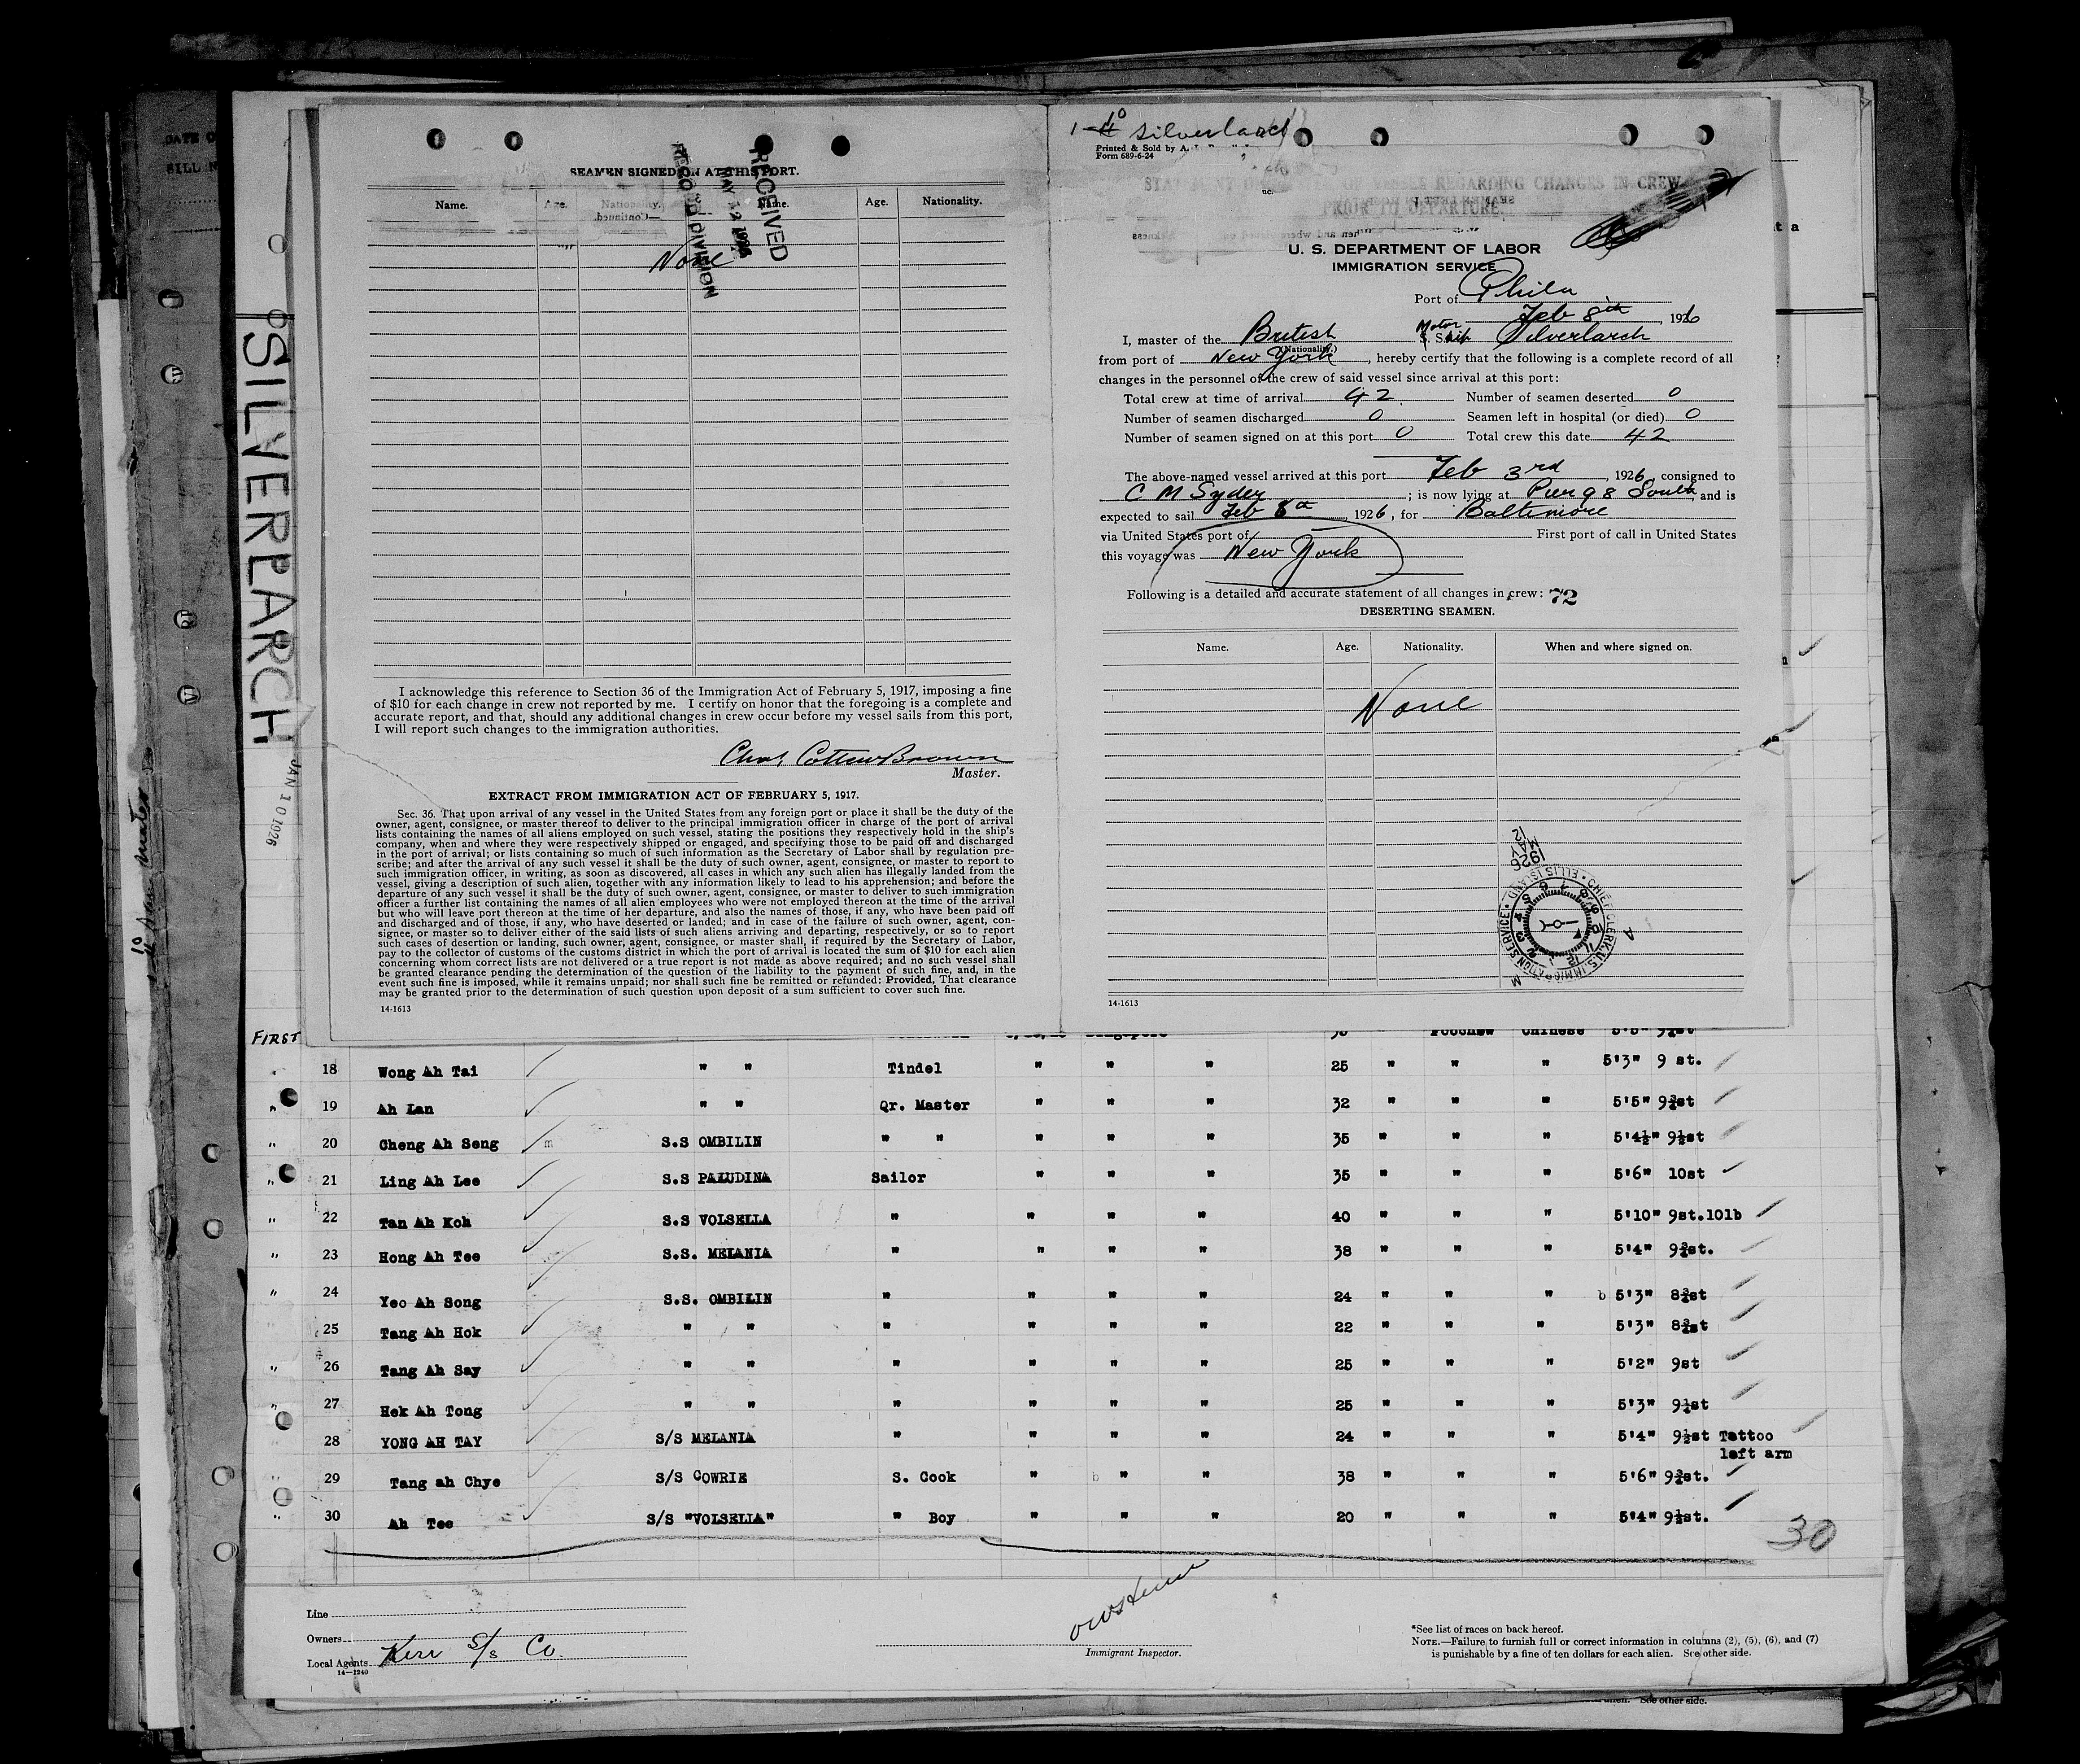 SEAMEN SIGNED ON AT THIS PORT.
Name. Age. Nationality. Name. Age. Nationality.
None
RECEIVED
MAY 12 1926
RECORD DIVISION
I acknowledge this reference to Section 36 of the Immigration Act of February 5, 1917, imposing a fine
of $10 for each change in crew not reported by me. I certify on honor that the foregoing is a complete and
accurate report, and that, should any additional changes in crew occur before my vessel sails from this port,
I will report such changes to the immigration authorities.
Master.
EXTRACT FROM IMMIGRATION ACT OF FEBRUARY 5, 1917.
Sec. 36. That upon arrival of any vessel in the United States from any foreign port or place it shall be the duty of the
owner, agent, consignee, or master thereof to deliver to the principal immigration officer in charge of the port of arrival
lists containing the names of all aliens employed on such vessel, stating the positions they respectively hold in the ship's
company, when and where they were respectively shipped or engaged, and specifying those to be paid off and discharged
in the port of arrival; or lists containing so much of such information as the Secretary of Labor shall by regulation pre-
scribe; and after the arrival of any such vessel it shall be the duty of such owner, agent, consignee, or master to report to
such immigration officer, in writing, as soon as discovered, all cases in which any such alien has illegally landed from the
vessel, giving a description of such alien, together with any information likely to lead to his apprehension; and before the
departure of any such vessel it shall be the duty of such owner, agent, consignee, or master to deliver to such immigration
officer a further list containing the names of all alien employees who were not employed thereon at the time of the arrival
but who will leave port thereon at the time of her departure, and also the names of those, if any, who have been paid off
and discharged and of those, if any, who have deserted or landed; and in case of the failure of such owner, agent, con-
signee, or master so to deliver either of the said lists of such aliens arriving and departing, respectively, or so to report
such cases of desertion or landing, such owner, agent, consignee, or master shall, if required by the Secretary of Labor,
pay to the collector of customs of the customs district in which the port of arrival is located the sum of $10 for each alien
concerning whom correct lists are not delivered or a true report is not made as above required; and no such vessel shall
be granted clearance pending the determination of the question of the liability to the payment of such fine, and, in the
event such fine is imposed, while it remains unpaid; nor shall such fine be remitted or refunded: Provided, That clearance
may be granted prior to the determination of such question upon deposit of a sum sufficient to cover such fine.
14-1613
Silverlarch
Printed & Sold by A.
Form 689-6-24
REGARDING CHANGES IN CREW
PRIOR TO DEPARTURE.
U. S. DEPARTMENT OF LABOR
IMMIGRATION SERVICE
Port of Phila
Feb 8th, 1926
I, master of the British Motor Ship Silverlarch
(Nationality.)
from port of New York, hereby certify that the following is a complete record of all
changes in the personnel of the crew of said vessel since arrival at this port:
Total crew at time of arrival 42. Number of seamen deserted 0
Number of seamen discharged 0 Seamen left in hospital (or died) 0
Number of seamen signed on at this port 0 Total crew this date 42
The above-named vessel arrived at this port Feb 3rd, 1926, consigned to
C M Syder; is now lying at Pier 98 South, and is
expected to sail Feb 8th, 1926, for Baltimore
via United States port of First port of call in United States
this voyage was New York
Following is a detailed and accurate statement of all changes in crew: 72
DESERTING SEAMEN.
Name. Age. Nationality. When and where signed on.
None
1926 MAY 12
CHIEF CLERK, U.S. IMMIGRATION SERVICE ELLIS ISLAND
14-1613
SILVERLARCH
JAN 10 1926
FIRST
Foochow Chinese
18 Wong Ah Tai " " Tindel " " " 25 " " " 5'3" 9 st.
" 19 Ah Lan " " Qr. Master " " " 32 " " " 5'5" 9¾st
" 20 Cheng Ah Seng m S.S OMBILIN " " " " " 35 " " " 5'4½" 9½st
" 21 Ling Ah Lee S.S PALUDINA Sailor " " " 35 " " " 5'6" 10st
" 22 Tan Ah Koh S.S VOLSELLA " " " " 40 " " " 5'10" 9st.10lb
" 23 Hong Ah Tee S.S. MELANIA " " " " 38 " " " 5'4" 9¾st.
" 24 Yeo Ah Song S.S. OMBILIN " " " " 24 " " " b 5'3" 8¾st
25 Tang Ah Hok " " " " " " 22 " " " 5'3" 8¾st
" 26 Tang Ah Say " " " " " " 25 " " " 5'2" 9st
" 27 Hek Ah Tong " " " " " " 25 " " " 5'3" 9½st
28 YONG AH TAY S/S MELANIA " " " " 24 " " " 5'4" 9½st Tattoo
left arm
29 Tang ah Chye S/S COWRIE S. Cook " b " " 38 " " " 5'6" 9¾st.
" 30 Ah Tee S/S "VOLSELLA" " Boy " " " 20 " " " 5'4" 9½st.
30
Line
Owners
Local Agents Kerr S/s Co.
14-1240
Immigrant Inspector.
*See list of races on back hereof.
NOTE.—Failure to furnish full or correct information in columns (2), (5), (6), and (7)
is punishable by a fine of ten dollars for each alien. See other side.
See other side.